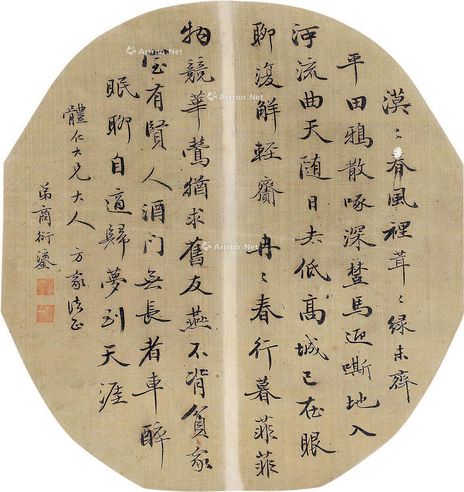 漠〻春風裡茸〻緑未齊
平田鴉散啄深馬迎嘶地入
河流曲天随日去低髙城已在眼
聊復解輕齎 冉〻春行暮菲菲
物競華鶯猶求舊友燕不背貧家
室有賢人酒門無長者車醉
眠聊自適歸夢到天涯
體仁大兄大人 方家法正
弟商衍鎏
Artron.Net
Artron.Net
Artron.Net
Artron.Net